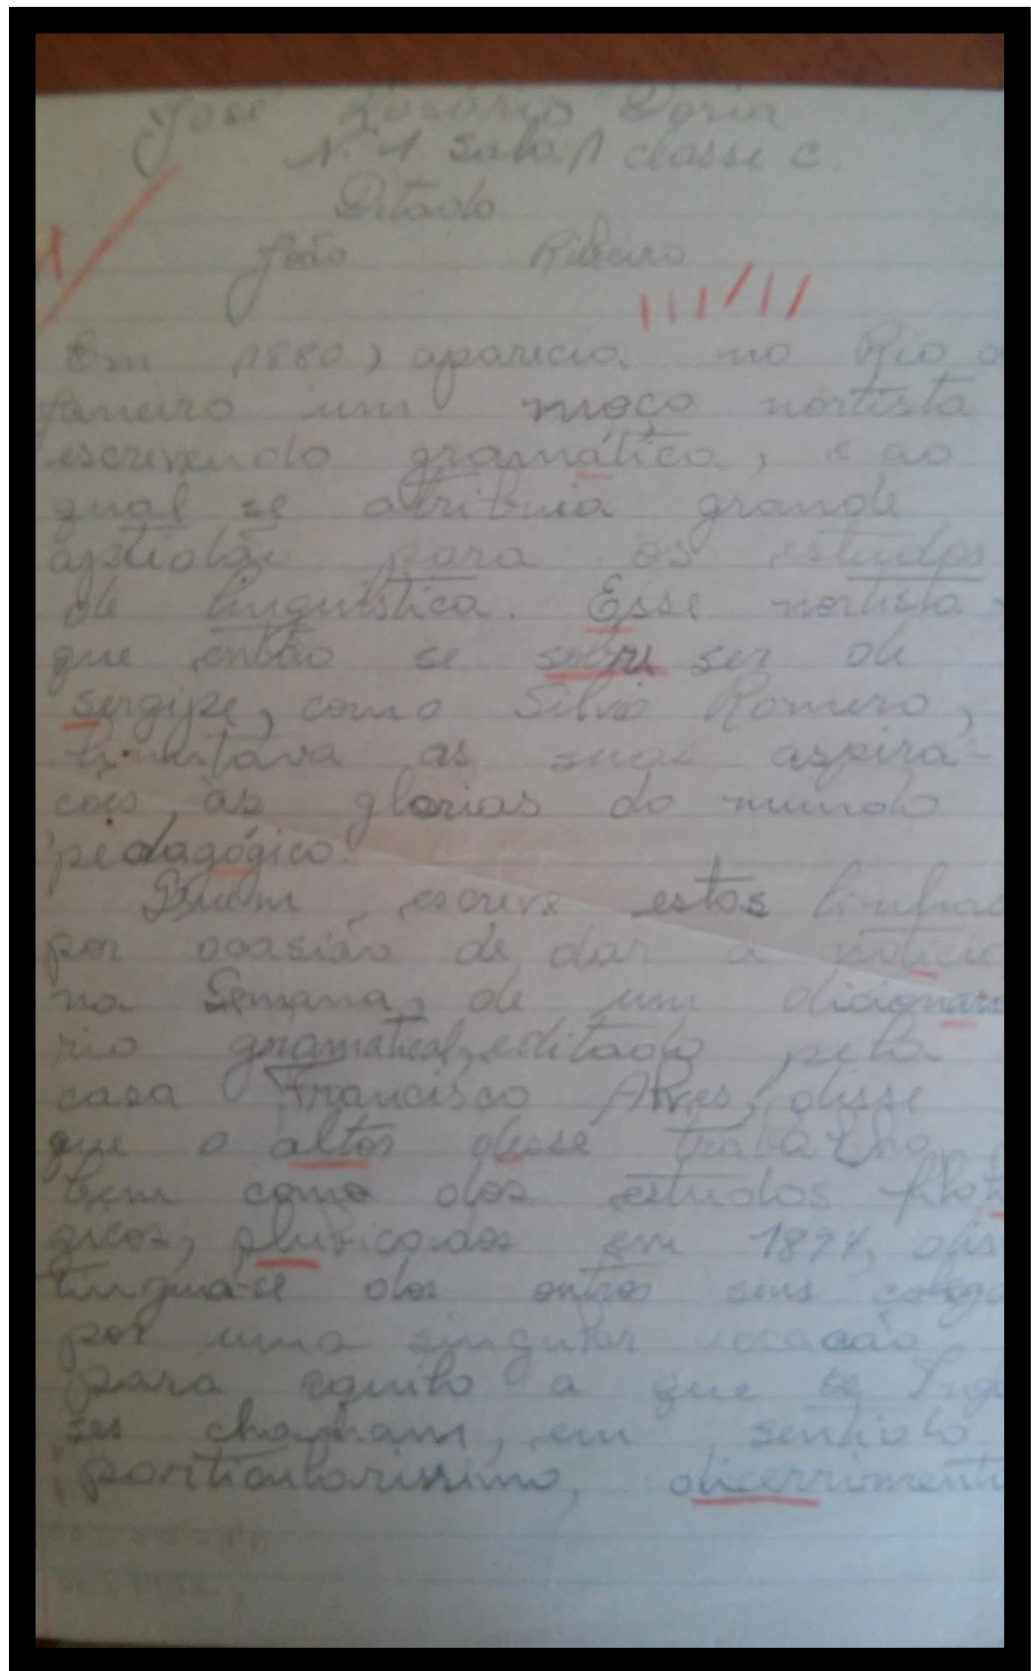 José Rosário Dória
N. 1 Sala A classe C.
Ditado
João Ribeiro
Em (1880) aparecia no Rio d
Janeiro um moço nortista
escrevendo gramática, e ao
qual se atribuia grande
aptidão para os estudos
de linguistica. Esse nortista
que então se soube ser de
sergipe, como Silvio Romero,
limitava as suas aspira-
coes, as glorias do mundo
pedagógico.
Quem, escreve estas linhas
por ocasião de dar a noticia
na Semana, de um diciona
rio gramatical, editado pela
casa Francisco Alves, disse
que o altos desse trabalho,
bem como dos estudos filolo
gicos, pluvicados em 1894, dis
tinguia-se dos outros seus colega
por uma singular vocacão
para aquilo a que se Ingl
ses chamam, em sentido
particularissimo,